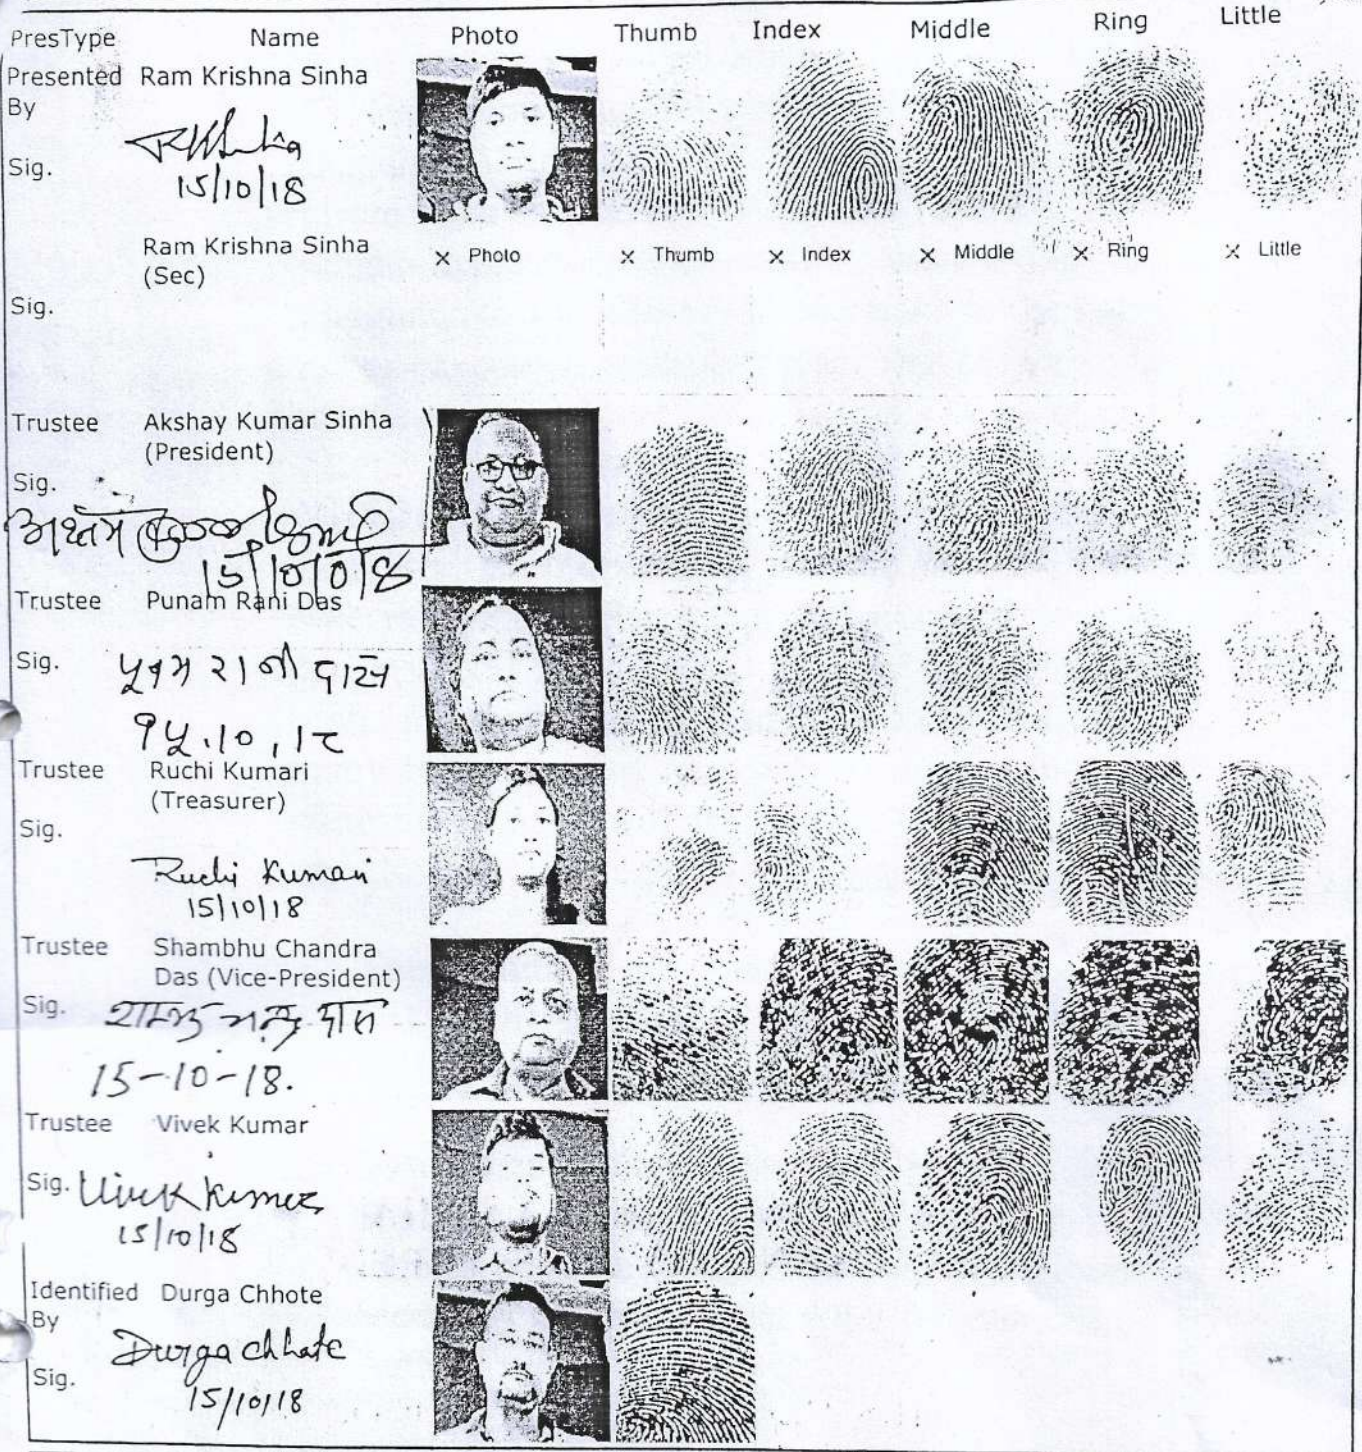 PresType Name Photo Thumb Index Middle Ring Little
Presented Ram Krishna Sinha
By
Sig.
15/10/18
Ram Krishna Sinha × Photo × Thumb × Index × Middle × Ring × Little
(Sec)
Sig.
Trustee Akshay Kumar Sinha
(President)
Sig.
Trustee Punam Rani Das
Sig. पुनम रानी दास
१५.१०.१८
Trustee Ruchi Kumari
(Treasurer)
Sig.
Ruchi Kumari
15/10/18
Trustee Shambhu Chandra
Das (Vice-President)
Sig. दास
15-10-18.
Trustee Vivek Kumar
Sig. Vivek Kumar
15/10/18
Identified Durga Chhote
By
Durga Chhote
Sig.
15/10/18